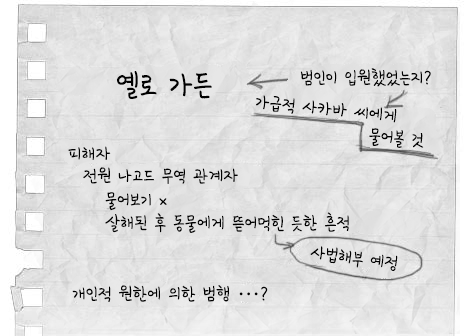 옐로 가든
범인이 입원했었는지?
가급적 사카바 씨에게
물어볼 것
피해자
전원 나고드 무역 관계자
물어보기 ×
살해된 후 동물에게 뜯어먹힌 듯한 흔적
사법해부 예정
개인적 원한에 의한 범행 ···?